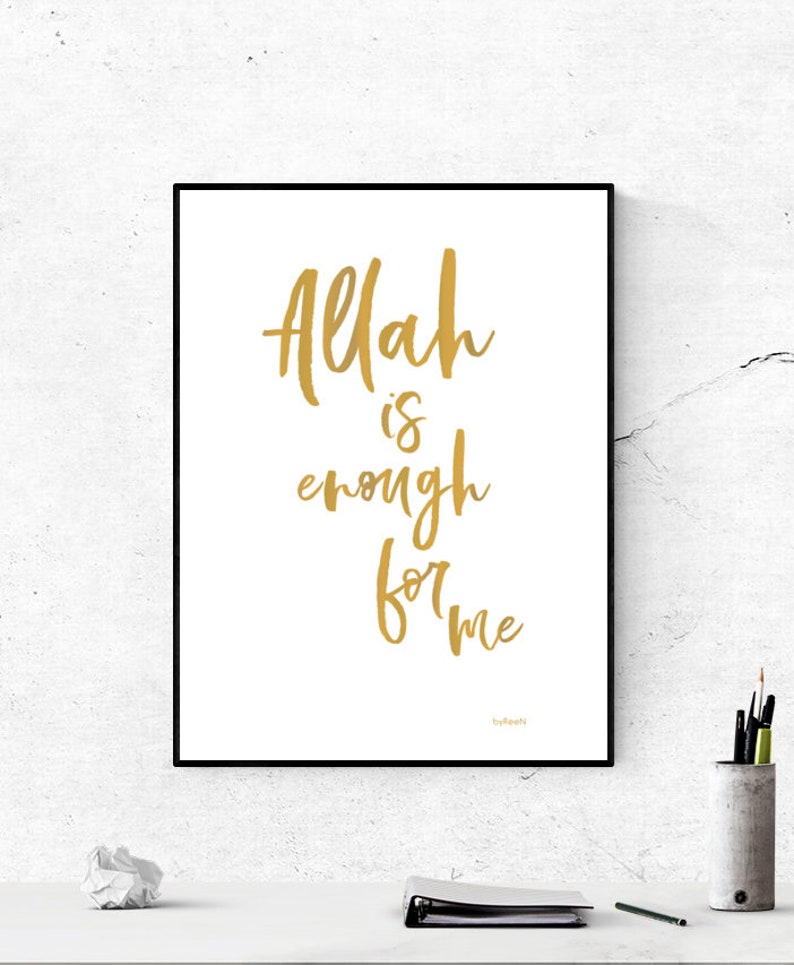 Allah
is
enough
for
me
byReeN